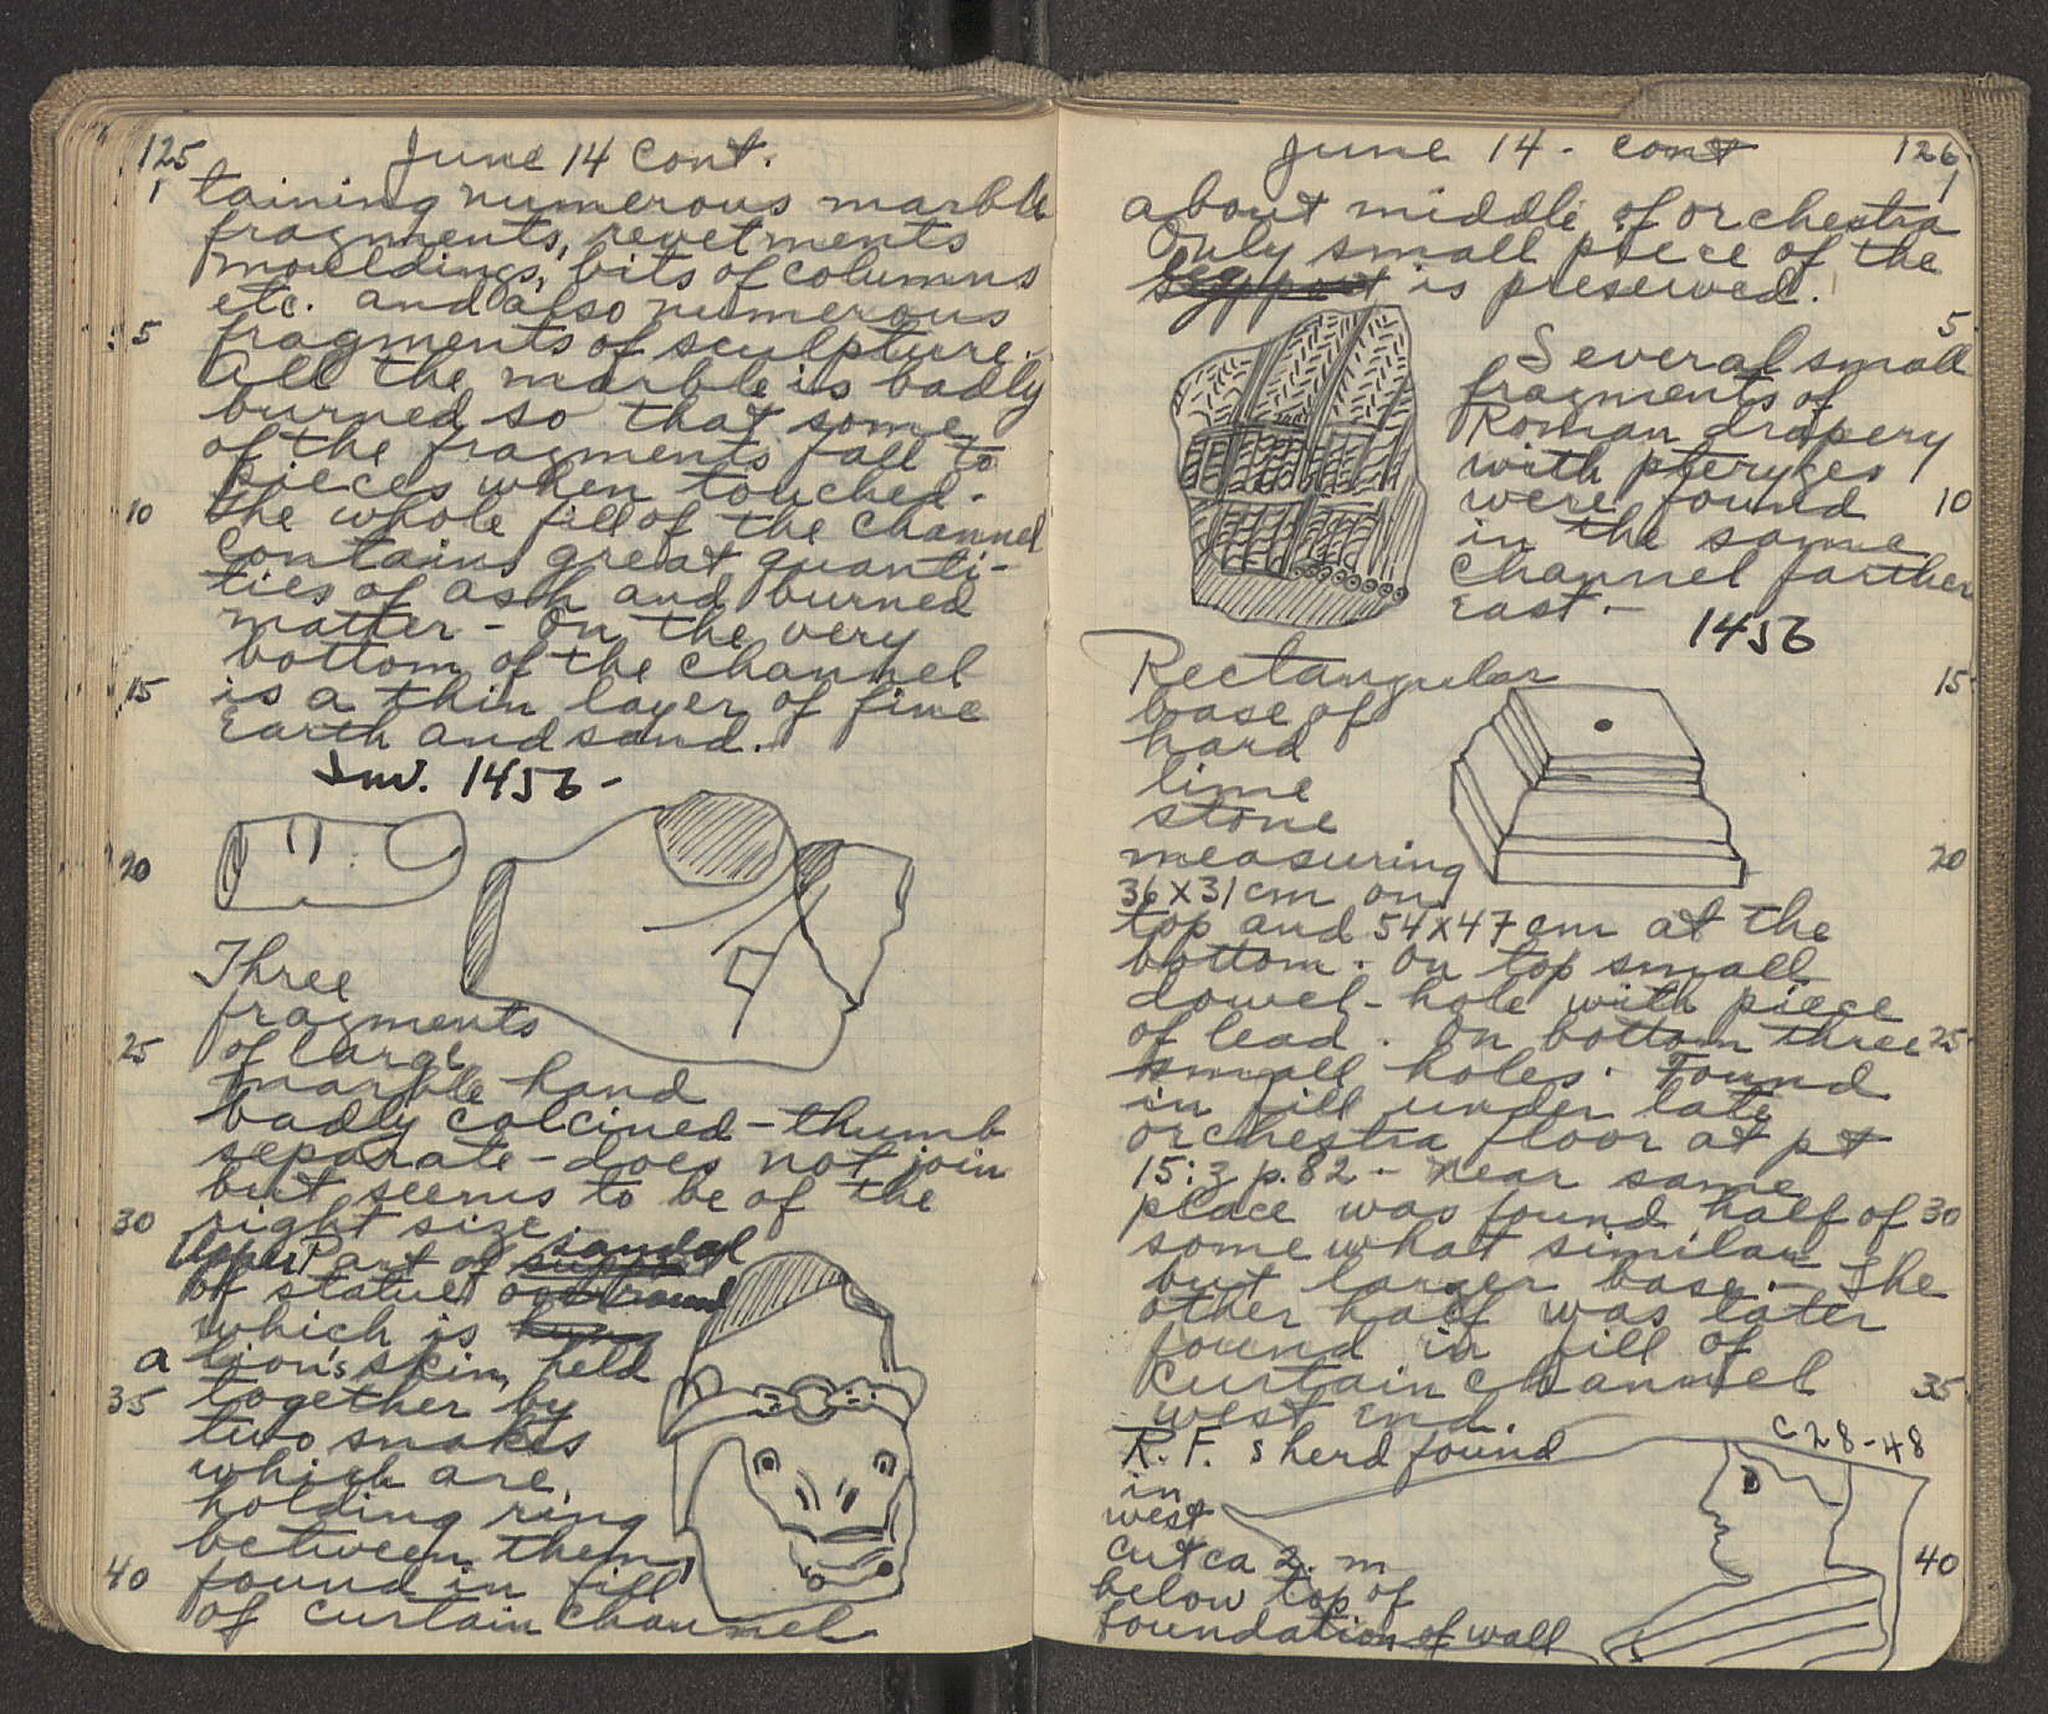 125 June 14 cont.
1 taining numerous marble
fragments, revetments
mouldings, bits of columns
etc. and also numerous
5 fragments of sculpture.
All the marble is badly
burned so that some
of the fragments fall to
pieces when touched.
10 The whole fill of the channel
contains great quanti-
ties of ash and burned
matter - On the very
bottom of the channel
15 is a thin layer of fine
Earth and sand.
Inv. 1456 -
20
Three
fragments
25 of large
marble hand
badly calcined - thumb
separate - does not join
but seems to be of the
30 right size.
Upper Part of sandal
of statue around
which is hung
a lion's skin, held
35 together by
two snakes
which are
holding ring
between them,
40 found in fill
of curtain channel
June 14 - cont 126
about middle of orchestra 1
Only small piece of the
leg is preserved.
Several small 5
fragments of
Roman drapery
with pteryges
were found 10
in the same
channel farther
East. -
1456
Rectangular 15
base of
hard
lime
stone
measuring 20
36 x 31 cm on
top and 54 x 47 cm at the
bottom. On top small
dowel-hole with piece
of lead. On bottom three 25
small holes. Found
in fill under late
orchestra floor at pt
15:3 p.82 - Near same
place was found half of 30
somewhat similar
but larger base. - The
other half was later
found in fill of
Curtain channel 35
west End.
C 28-48
R.F. sherd found
in
west
cut ca 2. m 40
below top of
foundation of wall